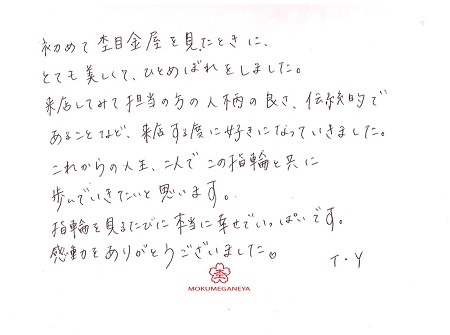 初めて杢目金屋を見たときに、
とても美しくて、ひとめぼれをしました。
来店してみて担当の方の人柄の良さ、伝統的で
あることなど、来店する度に好きになっていきました。
これからの人生、二人でこの指輪と共に
歩んでいきたいと思います。
指輪を見るたびに本当に幸せでいっぱいです。
感動をありがとうございました。
T・Y
杢
MOKUMEGANEYA